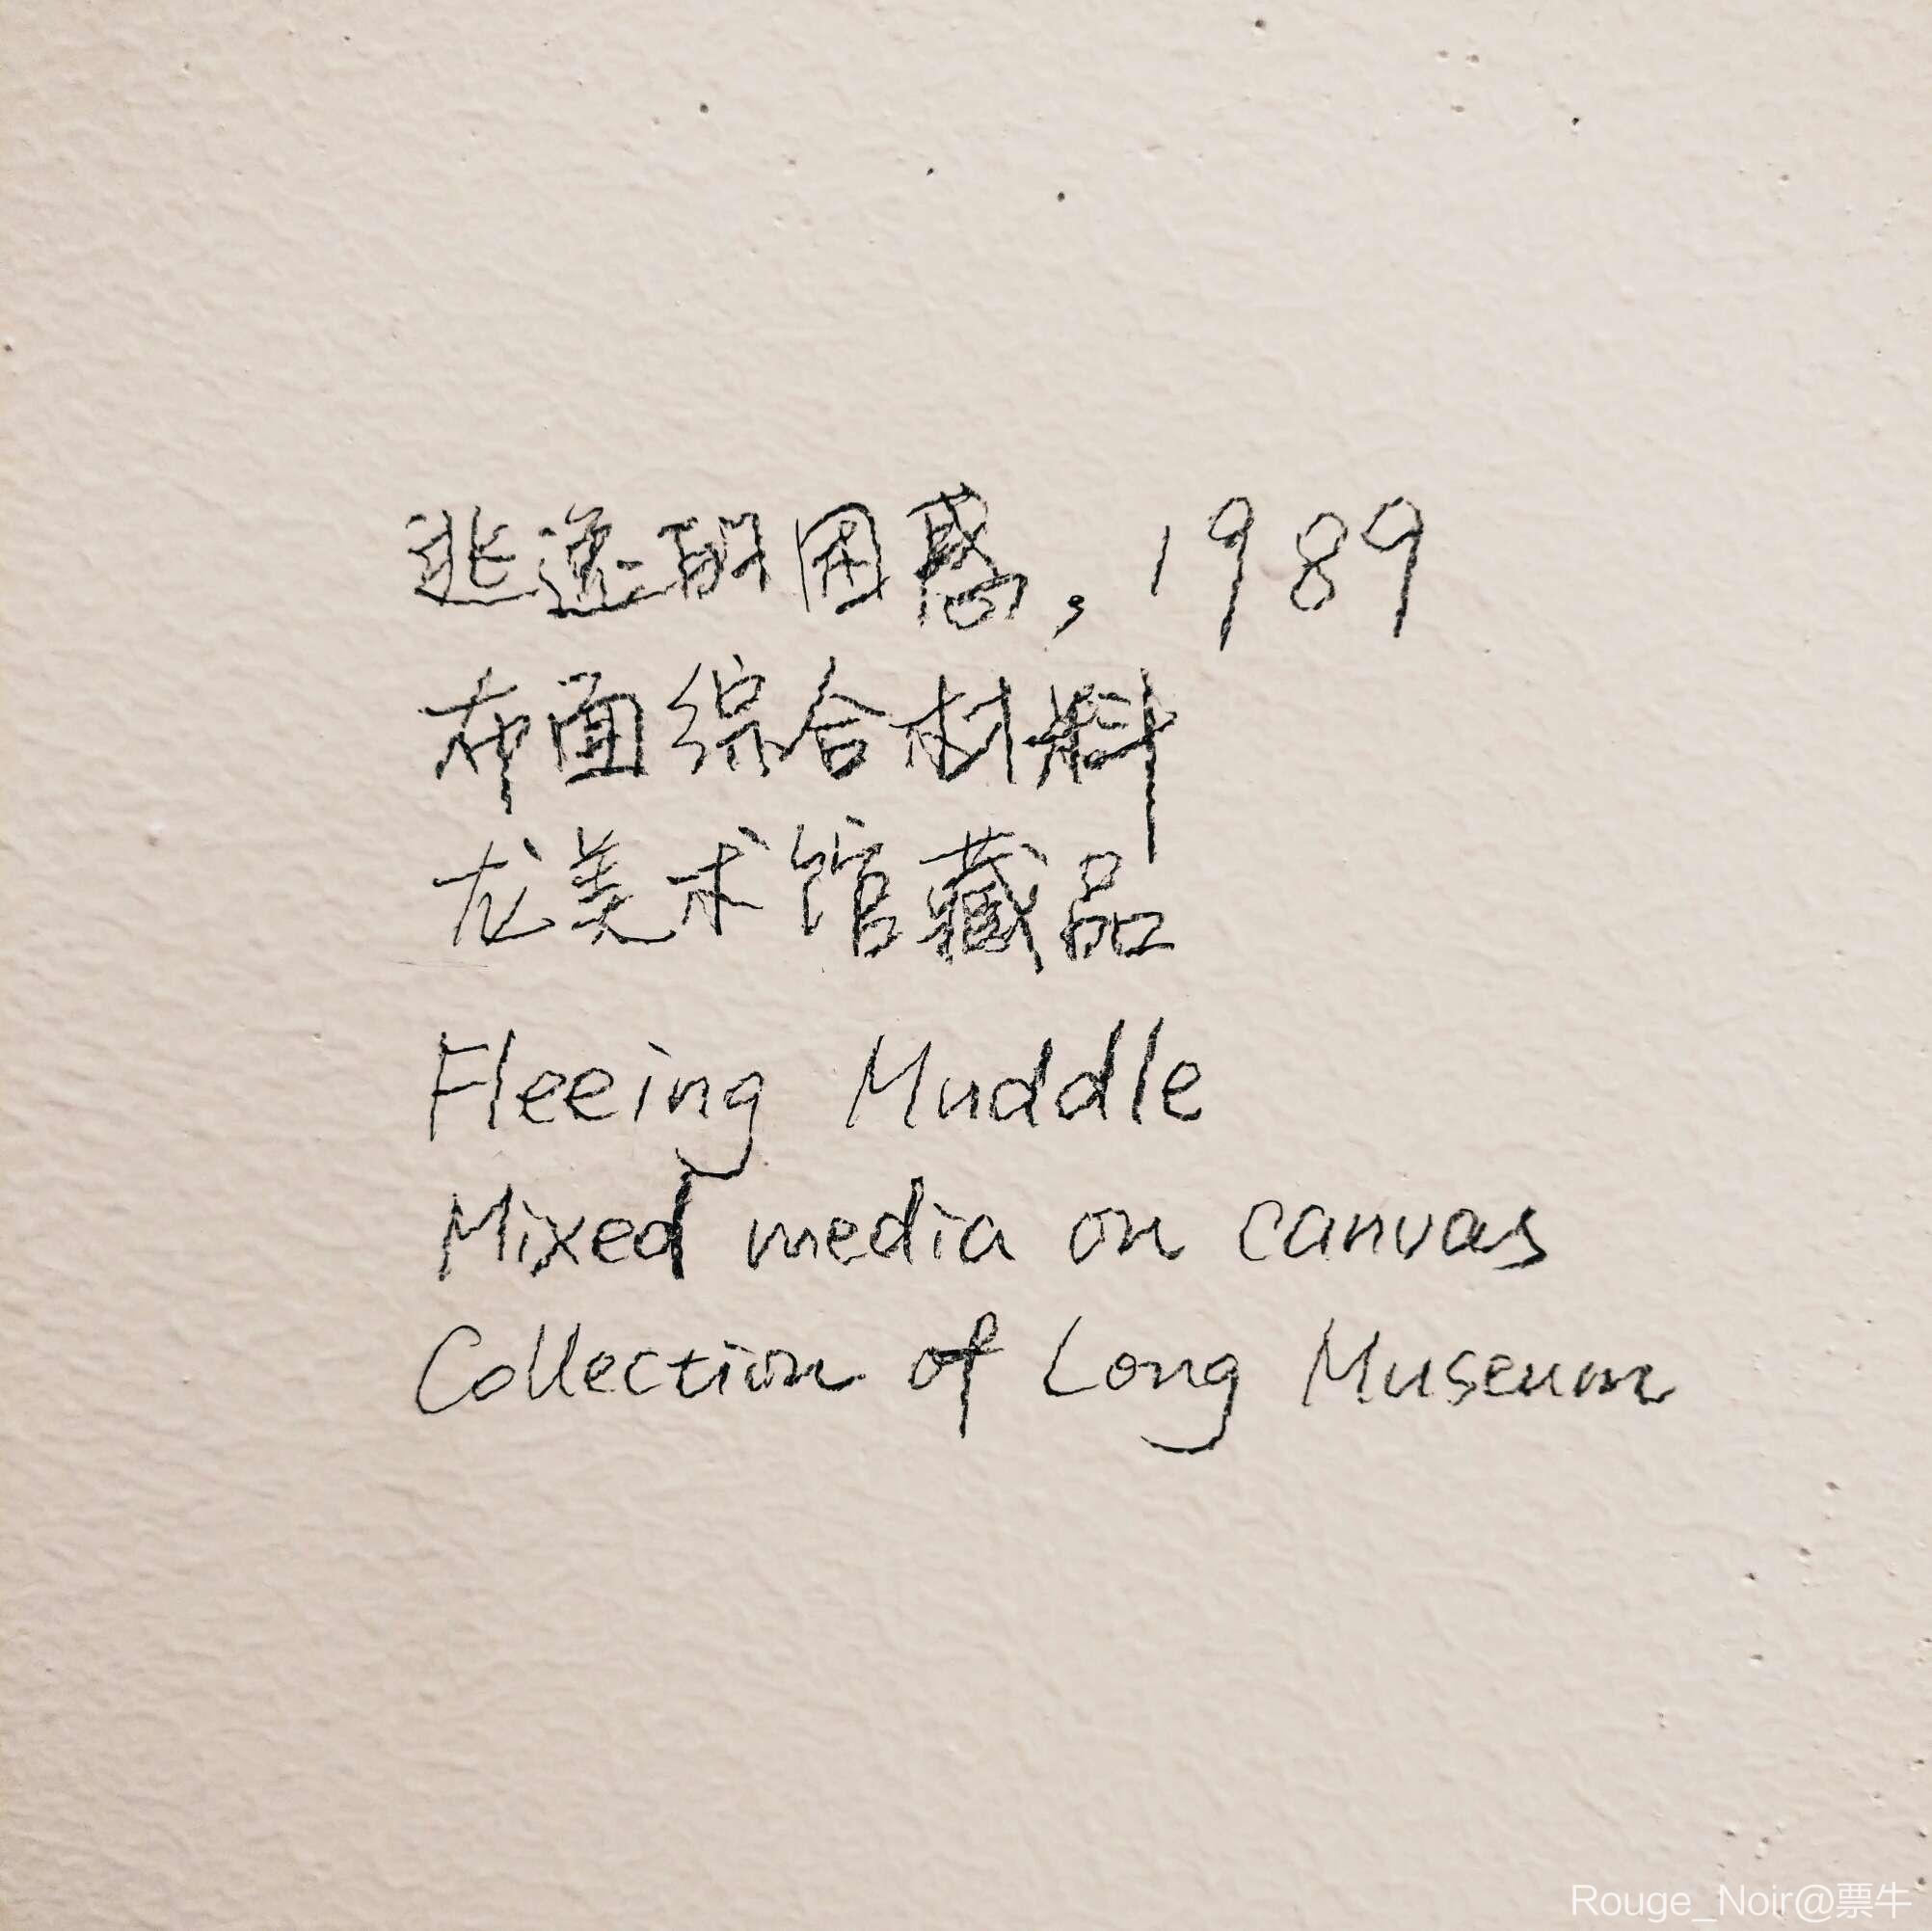 逃逸的困惑，1989
布面综合材料
龙美术馆藏品
Fleeing Muddle
Mixed media on canvas
Collection of Long Museum
Rouge_Noir@票牛